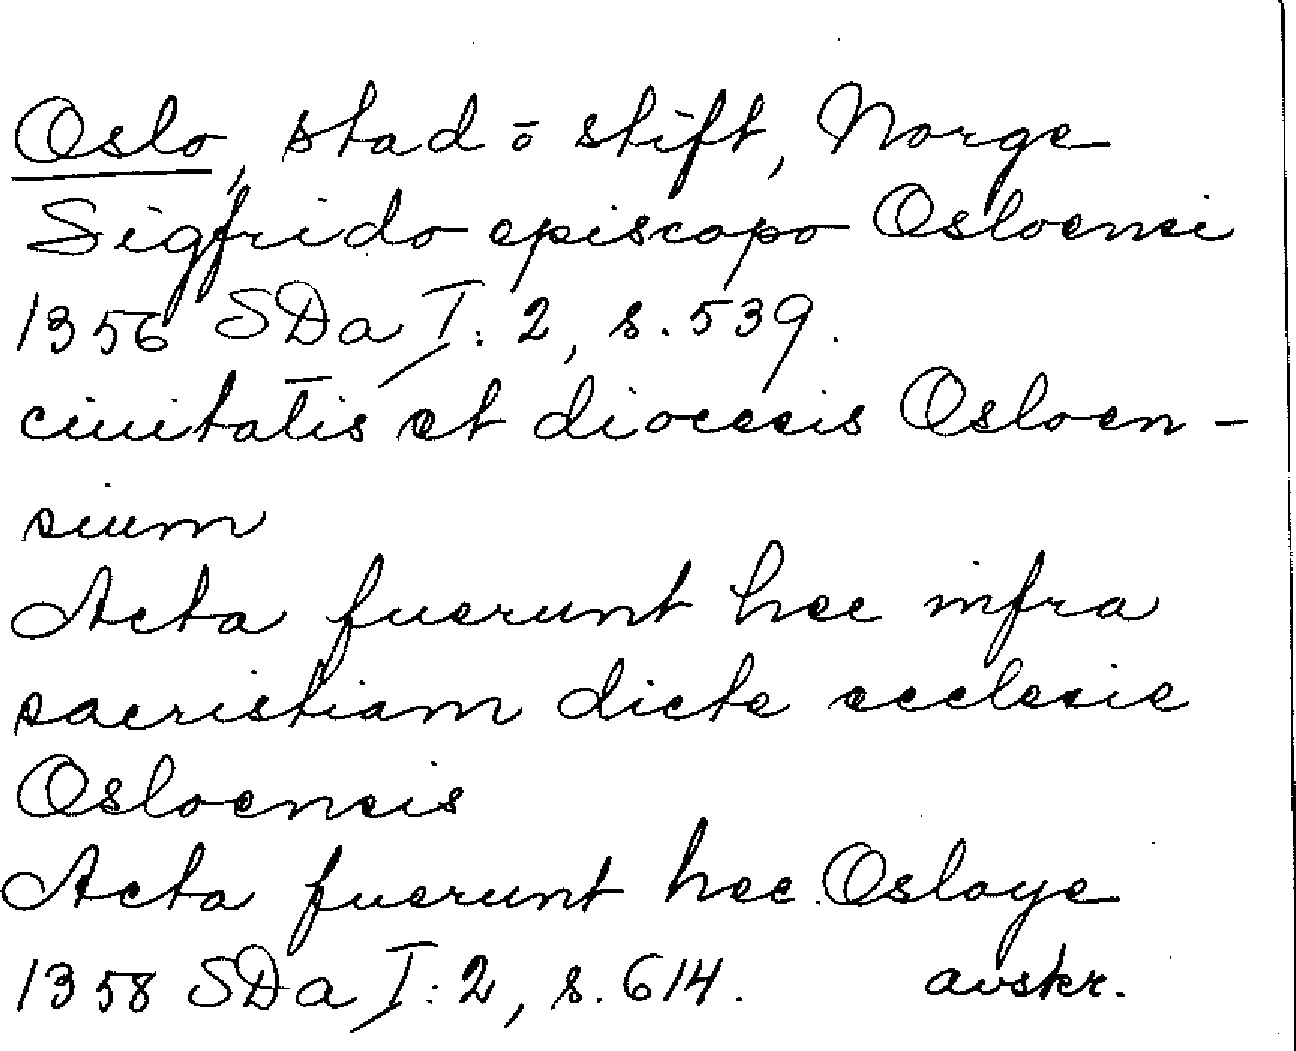 Oslo, stad o stift, Norge
Sigfrido episcopo Osloensi
1356 SDa I:2, s. 539.
ciuitatis et diocesis Osloen-
sium
Acta fuerunt hec infra
sacristiam dicte ecclesie
Osloensis
Acta fuerunt hec Osloye
1358 SDa I:2, s. 614. avskr.